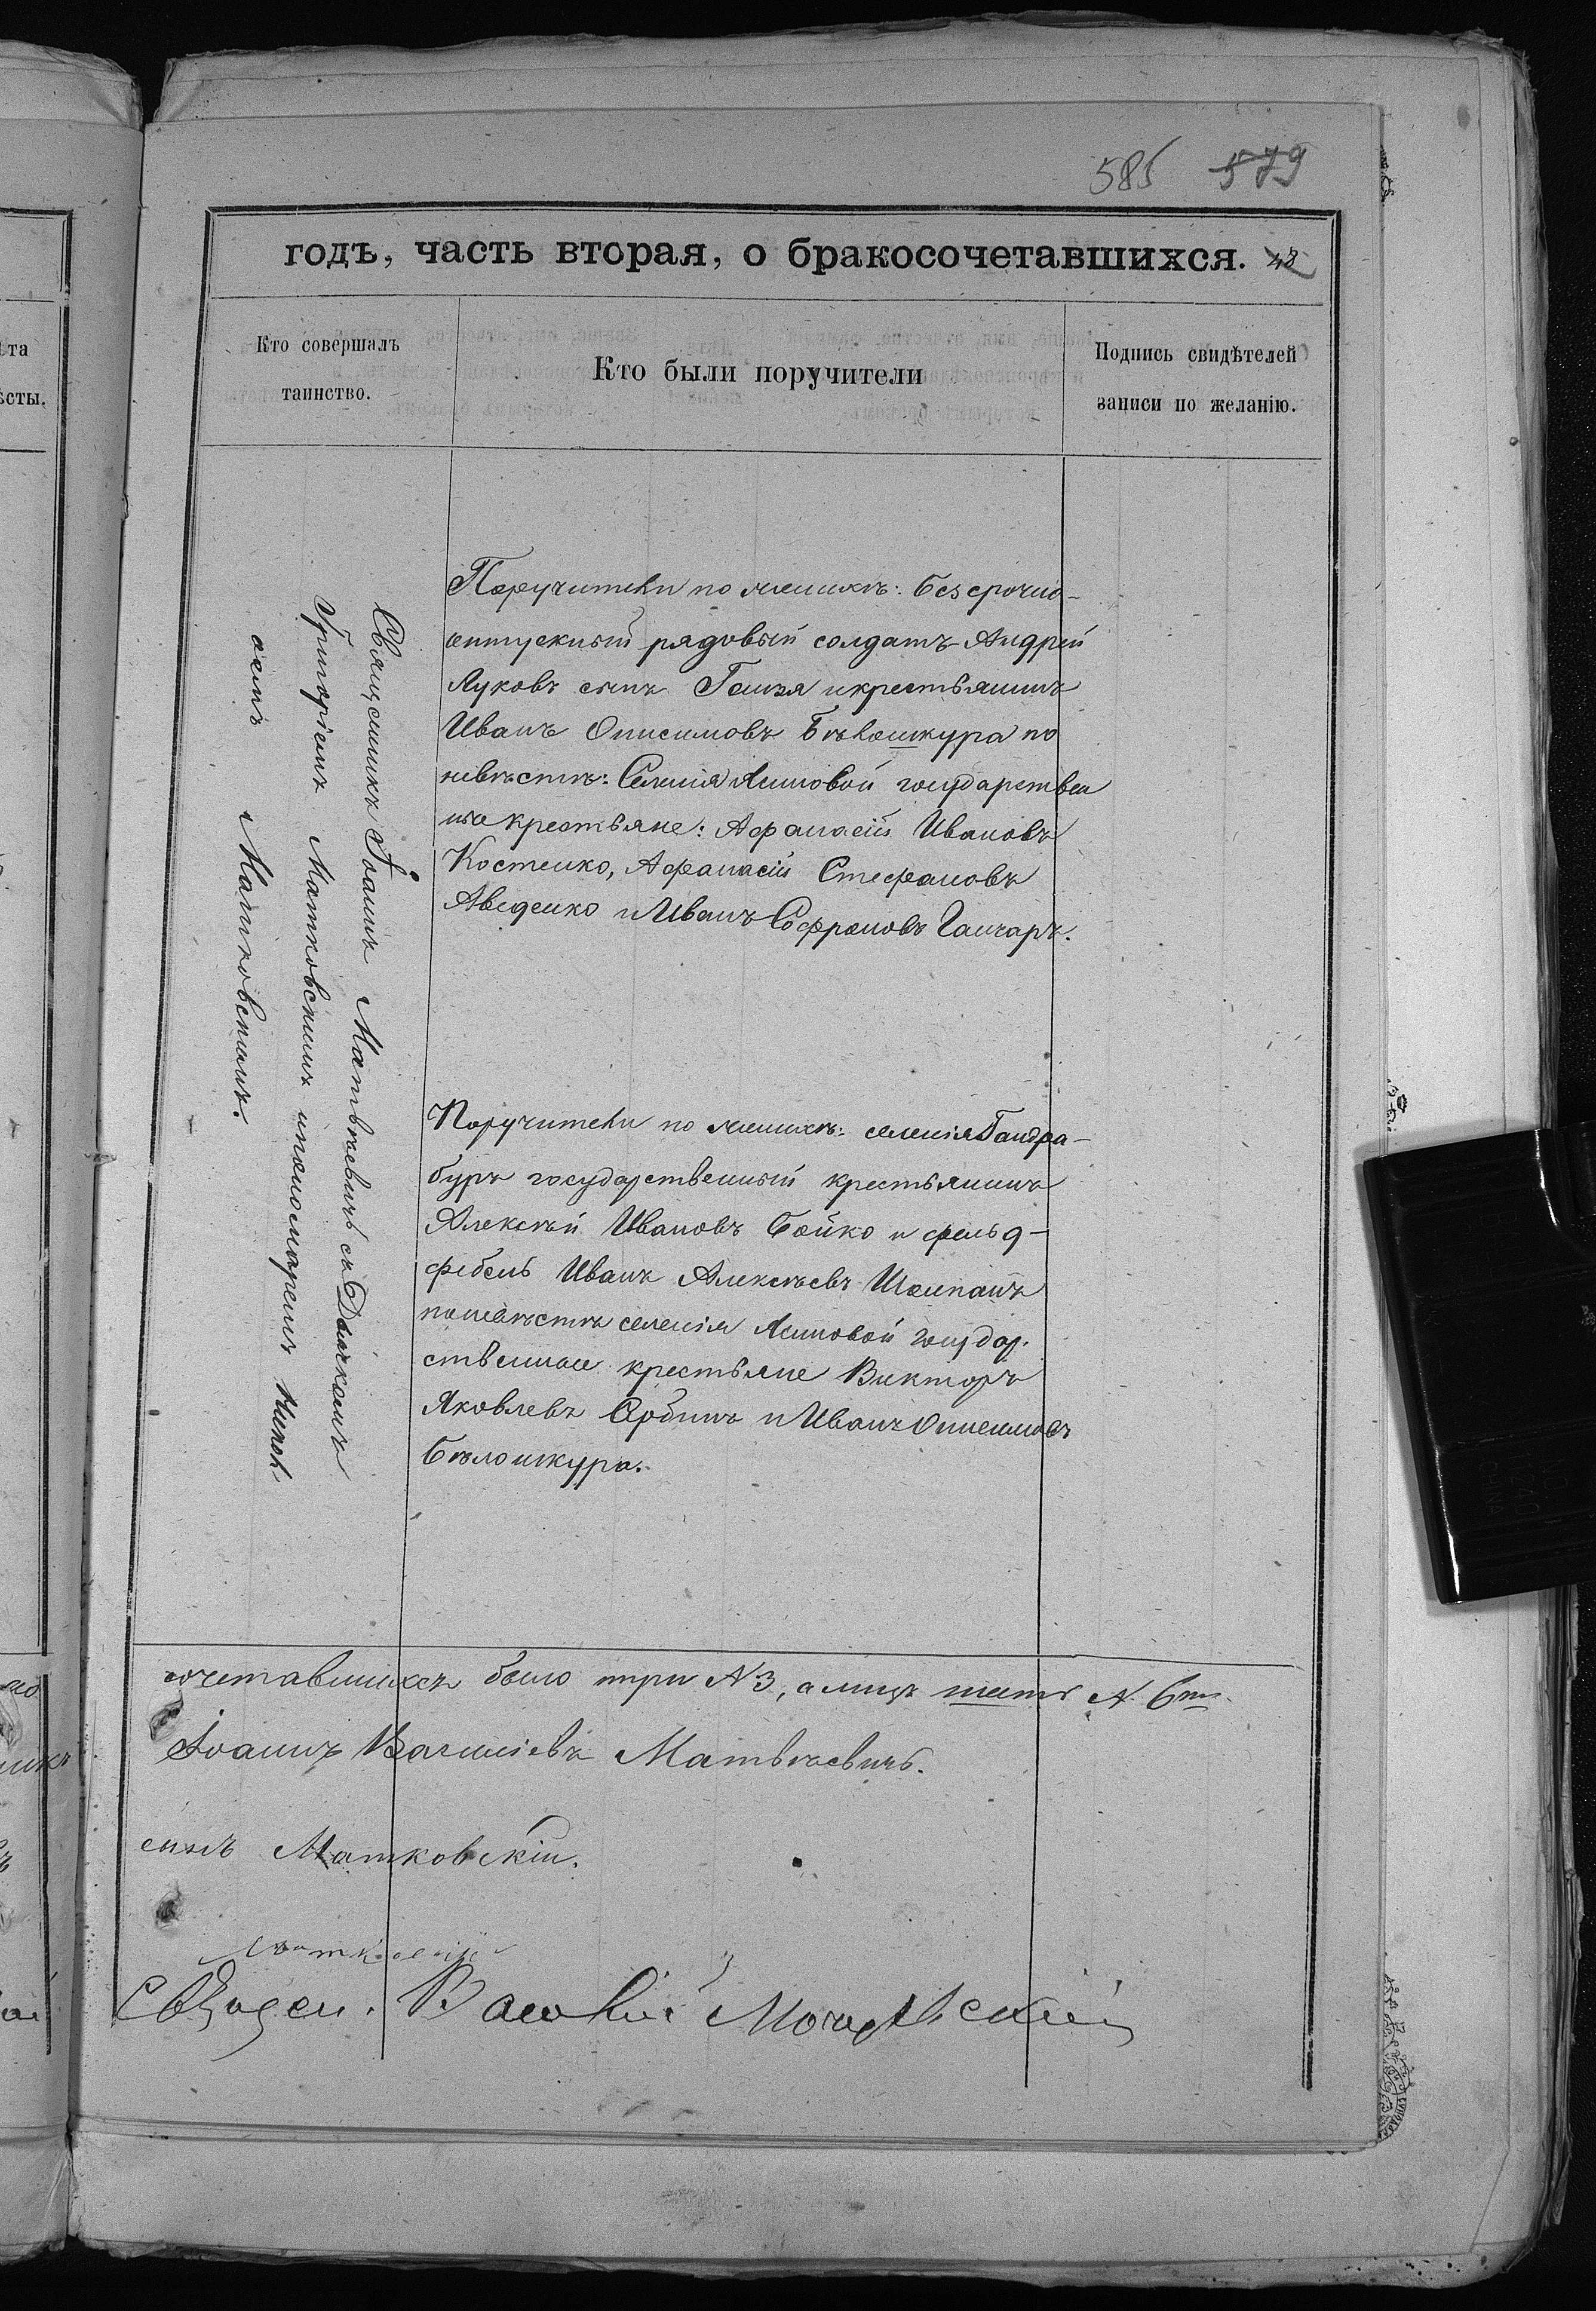 585 579
годъ, часть вторая, о бракосочетавшихся. 42
Кто совершалъ
таинство.
Кто были поручители
Подпись свидѣтелей
записи по желанію.
ѣта
ѣсты.
Священникъ Іоаннъ Матвѣевичъ съ Дьячкомъ
Григоріемъ Матковскимъ и пономаремъ Никол
аемъ Матковскимъ.
Поручители по женихѣ: безсрочно-
отпускный рядовый солдатъ Андрей
Луковъ сынъ Ганжа и крестьянинъ
Иванъ Онисимовъ Бѣлошкура по
невѣстѣ: Селенія Ясиновой государствен
ные крестьяне: Афанасій Ивановъ
Костенко, Афанасій Стефановъ
Аведенко и Иванъ Софроновъ Ганчаръ.
Поручители по женихѣ: селенія Гандра-
буръ государственный крестьянинъ
Алексѣй Ивановъ Бойко и фельд-
фебель Иванъ Алексѣевъ Шолпанъ
по невѣстѣ селенія Ясиновой государ.
ственные крестьяне Викторъ
Яковлевъ Сербинъ и Иванъ Онисимовъ
Бѣлошкура.
сочетавшихся было три N 3, а лицъ шесть N. 6ть.
Іоаннъ Василіевъ Матвѣевичъ.
сынъ Матковскій.
Матковскій
Василій